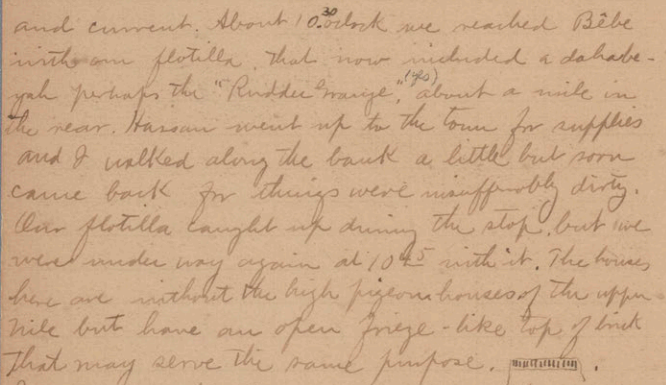 and current. About 10.30 o'clock we reached Bêbe
with our flotilla, that now included a dahabe-
yah perhaps the "Ruddee Grange," (yes) about a mile in
the rear. Hassan went up to the town for supplies
and I walked along the bank a little but soon
came back for things were insufferably dirty.
Our flotilla caught up during the stop, but we
were under way again at 10 45 with it. The houses
here are without the high pigeon houses of the upper
Nile but have an open frieze-like top of brick
that may serve the same purpose.